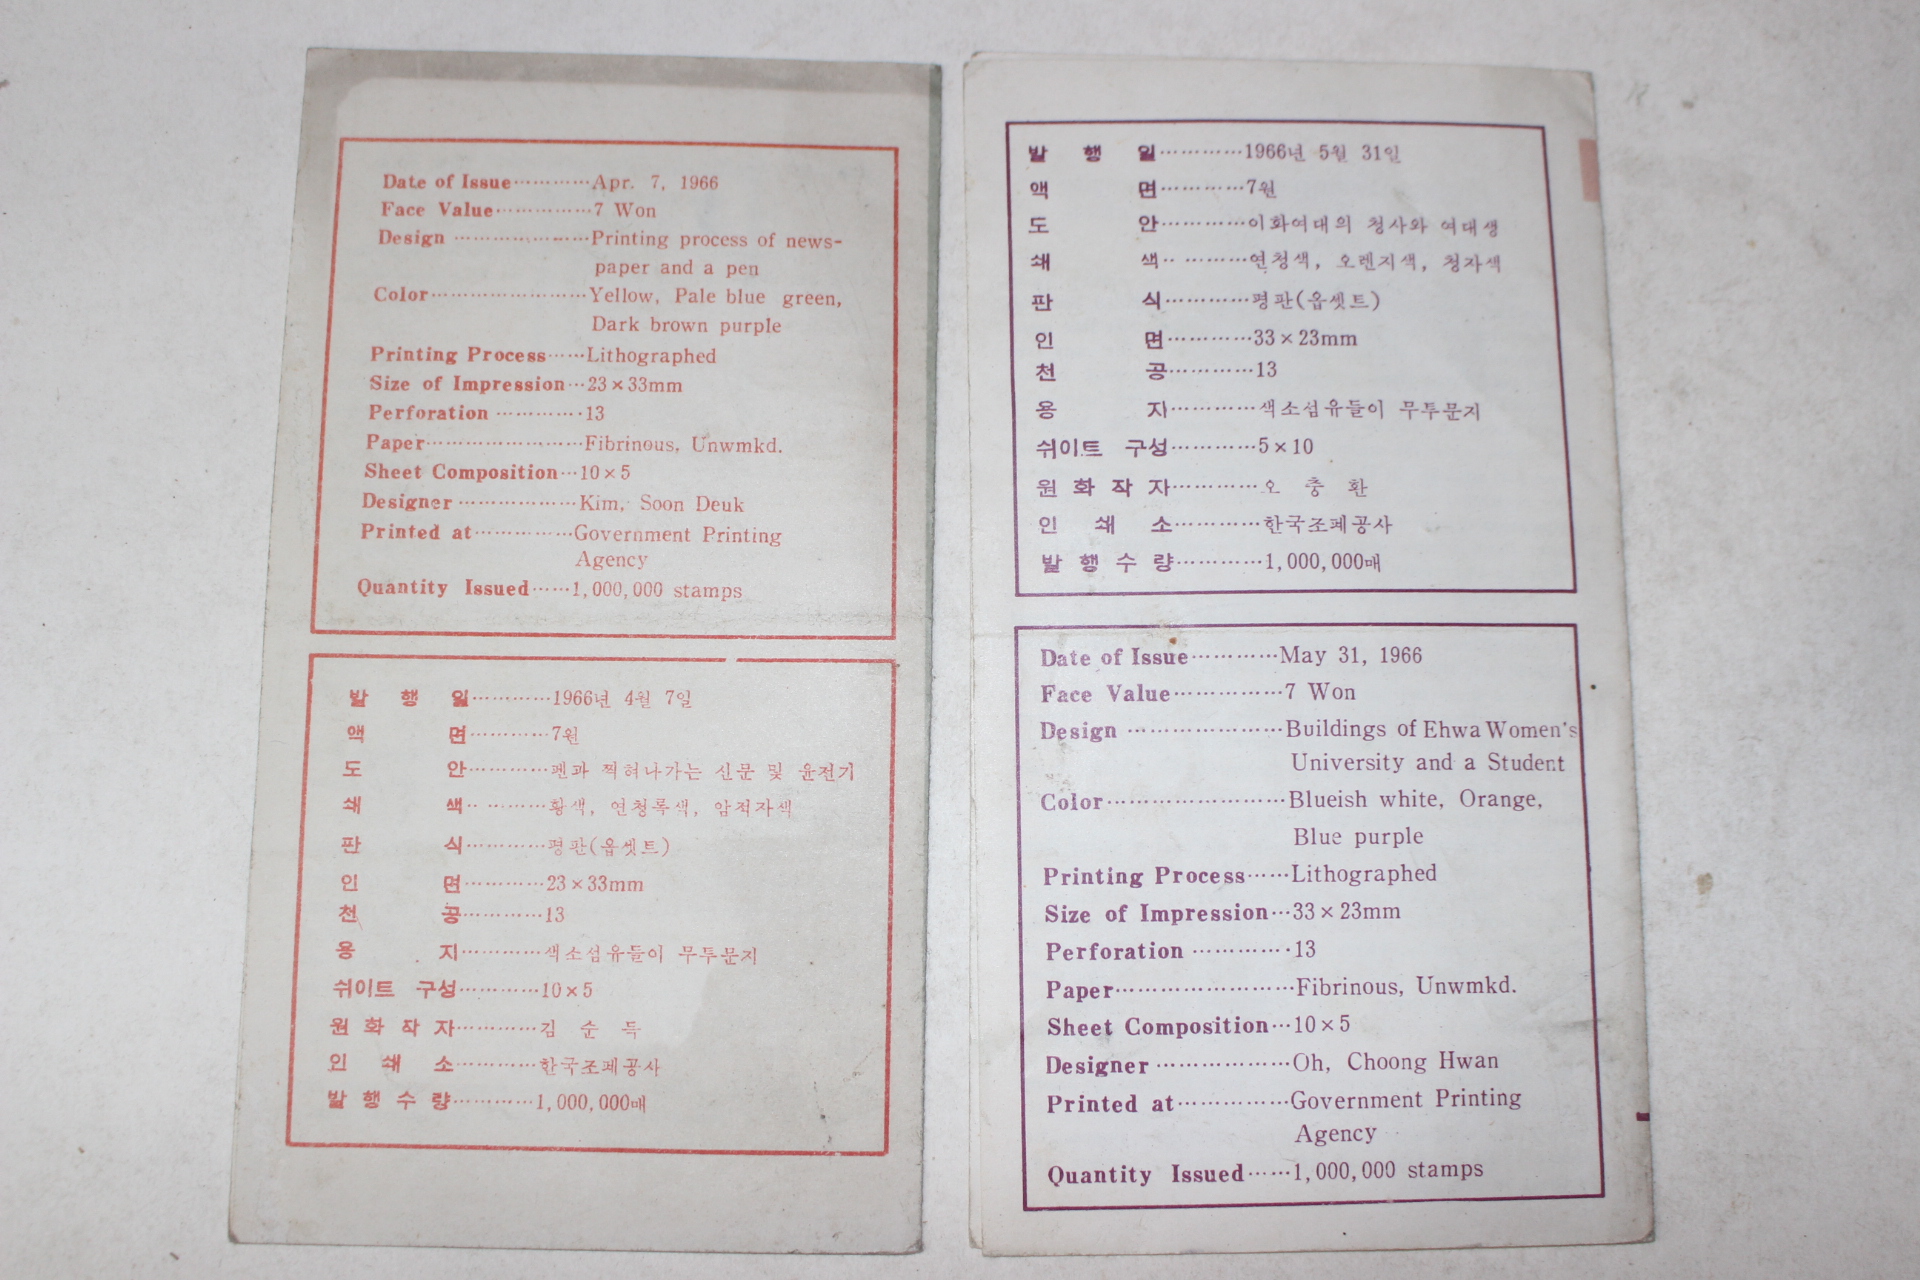 Date of Issue…………Apr. 7, 1966
Face Value……………7 Won
Design …………………Printing process of news-
paper and a pen
Color……………………Yellow, Pale blue green,
Dark brown purple
Printing Process……Lithographed
Size of Impression…23×33mm
Perforation …………·13
Paper……………………Fibrinous, Unwmkd.
Sheet Composition…10×5
Designer ………………Kim, Soon Deuk
Printed at……………Government Printing
Agency
Quantity Issued……1,000,000 stamps
발 행 일…………1966년 4월 7일
액 면…………7원
도 안…………펜과 찍혀나가는 신문 및 윤전기
쇄 색‥ ………황색, 연청록색, 암적자색
판 식…………평판(옵셋트)
인 면…………23×33mm
천 공…………13
용 지…………색소섬유들이 무투문지
쉬이트 구성…………10×5
원 화 작 자…………김 순 득
인 쇄 소…………한국조폐공사
발 행 수 량…………1,000,000매
발 행 일…………1966년 5월 31일
액 면…………7원
도 안…………이화여대의 청사와 여대생
쇄 색‥ ………연청색, 오렌지색, 청자색
판 식…………평판(옵셋트)
인 면…………33×23mm
천 공…………13
용 자…………색소섬유들이 무투문지
쉬이트 구성…………5×10
원 화 작 자…………오 충 환
인 쇄 소…………한국조폐공사
발 행 수 량…………1,000,000매
Date of Issue…………May 31, 1966
Face Value……………7 Won
Design …………………Buildings of Ehwa Women's
University and a Student
Color……………………Blueish white, Orange,
Blue purple
Printing Process……Lithographed
Size of Impression…33×23mm
Perforation …………·13
Paper……………………Fibrinous, Unwmkd.
Sheet Composition…10×5
Designer ………………Oh, Choong Hwan
Printed at……………Government Printing
Agency
Quantity Issued……1,000,000 stamps